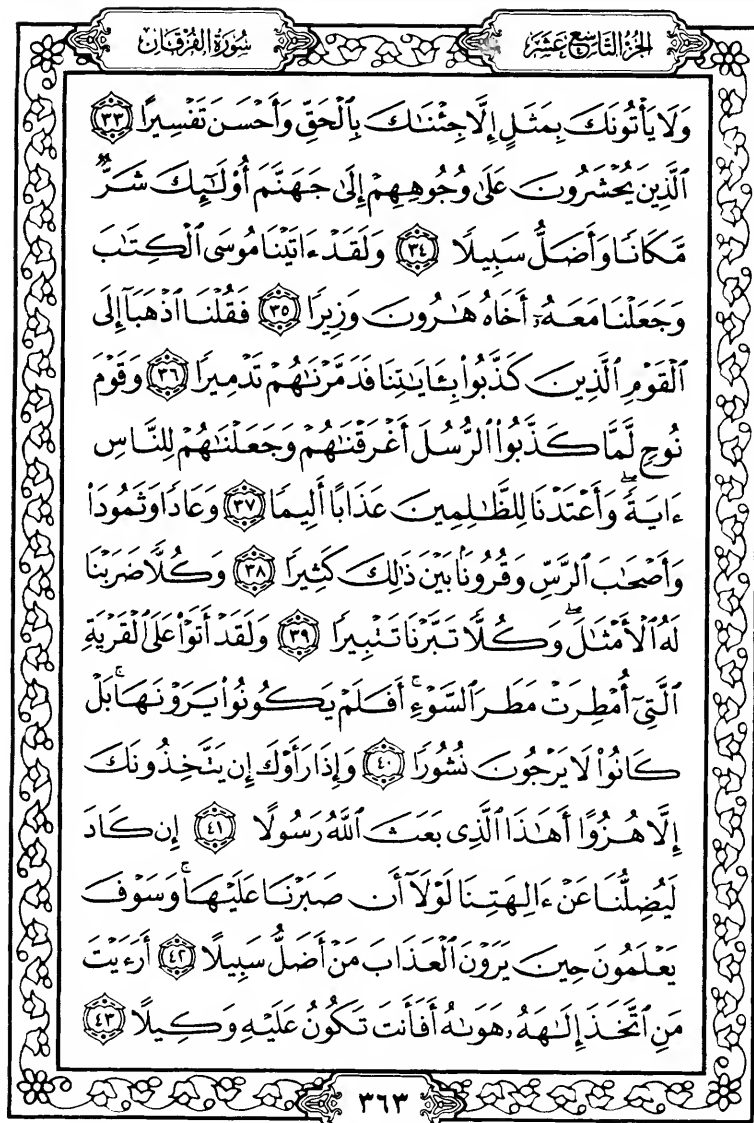 سُورَةُ الفُرْقَان
الجُزْءُ التَّاسِعَ عَشَرَ
وَلَا يَأْتُونَكَ بِمَثَلٍ إِلَّا جِئْنَٰكَ بِٱلْحَقِّ وَأَحْسَنَ تَفْسِيرًا ٣٣
ٱلَّذِينَ يُحْشَرُونَ عَلَىٰ وُجُوهِهِمْ إِلَىٰ جَهَنَّمَ أُو۟لَٰٓئِكَ شَرٌّ
مَّكَانًا وَأَضَلُّ سَبِيلًا ٣٤ وَلَقَدْ ءَاتَيْنَا مُوسَى ٱلْكِتَٰبَ
وَجَعَلْنَا مَعَهُۥٓ أَخَاهُ هَٰرُونَ وَزِيرًا ٣٥ فَقُلْنَا ٱذْهَبَآ إِلَى
ٱلْقَوْمِ ٱلَّذِينَ كَذَّبُوا۟ بِـَٔايَٰتِنَا فَدَمَّرْنَٰهُمْ تَدْمِيرًا ٣٦ وَقَوْمَ
نُوحٍ لَّمَّا كَذَّبُوا۟ ٱلرُّسُلَ أَغْرَقْنَٰهُمْ وَجَعَلْنَٰهُمْ لِلنَّاسِ
ءَايَةً ۖ وَأَعْتَدْنَا لِلظَّٰلِمِينَ عَذَابًا أَلِيمًا ٣٧ وَعَادًا وَثَمُودَا۟
وَأَصْحَٰبَ ٱلرَّسِّ وَقُرُونًۢا بَيْنَ ذَٰلِكَ كَثِيرًا ٣٨ وَكُلًّا ضَرَبْنَا
لَهُ ٱلْأَمْثَٰلَ ۖ وَكُلًّا تَبَّرْنَا تَتْبِيرًا ٣٩ وَلَقَدْ أَتَوْا۟ عَلَى ٱلْقَرْيَةِ
ٱلَّتِىٓ أُمْطِرَتْ مَطَرَ ٱلسَّوْءِ ۚ أَفَلَمْ يَكُونُوا۟ يَرَوْنَهَا ۚ بَلْ
كَانُوا۟ لَا يَرْجُونَ نُشُورًا ٤٠ وَإِذَا رَأَوْكَ إِن يَتَّخِذُونَكَ
إِلَّا هُزُوًا أَهَٰذَا ٱلَّذِى بَعَثَ ٱللَّهُ رَسُولًا ٤١ إِن كَادَ
لَيُضِلُّنَا عَنْ ءَالِهَتِنَا لَوْلَآ أَن صَبَرْنَا عَلَيْهَا ۚ وَسَوْفَ
يَعْلَمُونَ حِينَ يَرَوْنَ ٱلْعَذَابَ مَنْ أَضَلُّ سَبِيلًا ٤٢ أَرَءَيْتَ
مَنِ ٱتَّخَذَ إِلَٰهَهُۥ هَوَىٰهُ أَفَأَنتَ تَكُونُ عَلَيْهِ وَكِيلًا ٤٣
٣٦٣